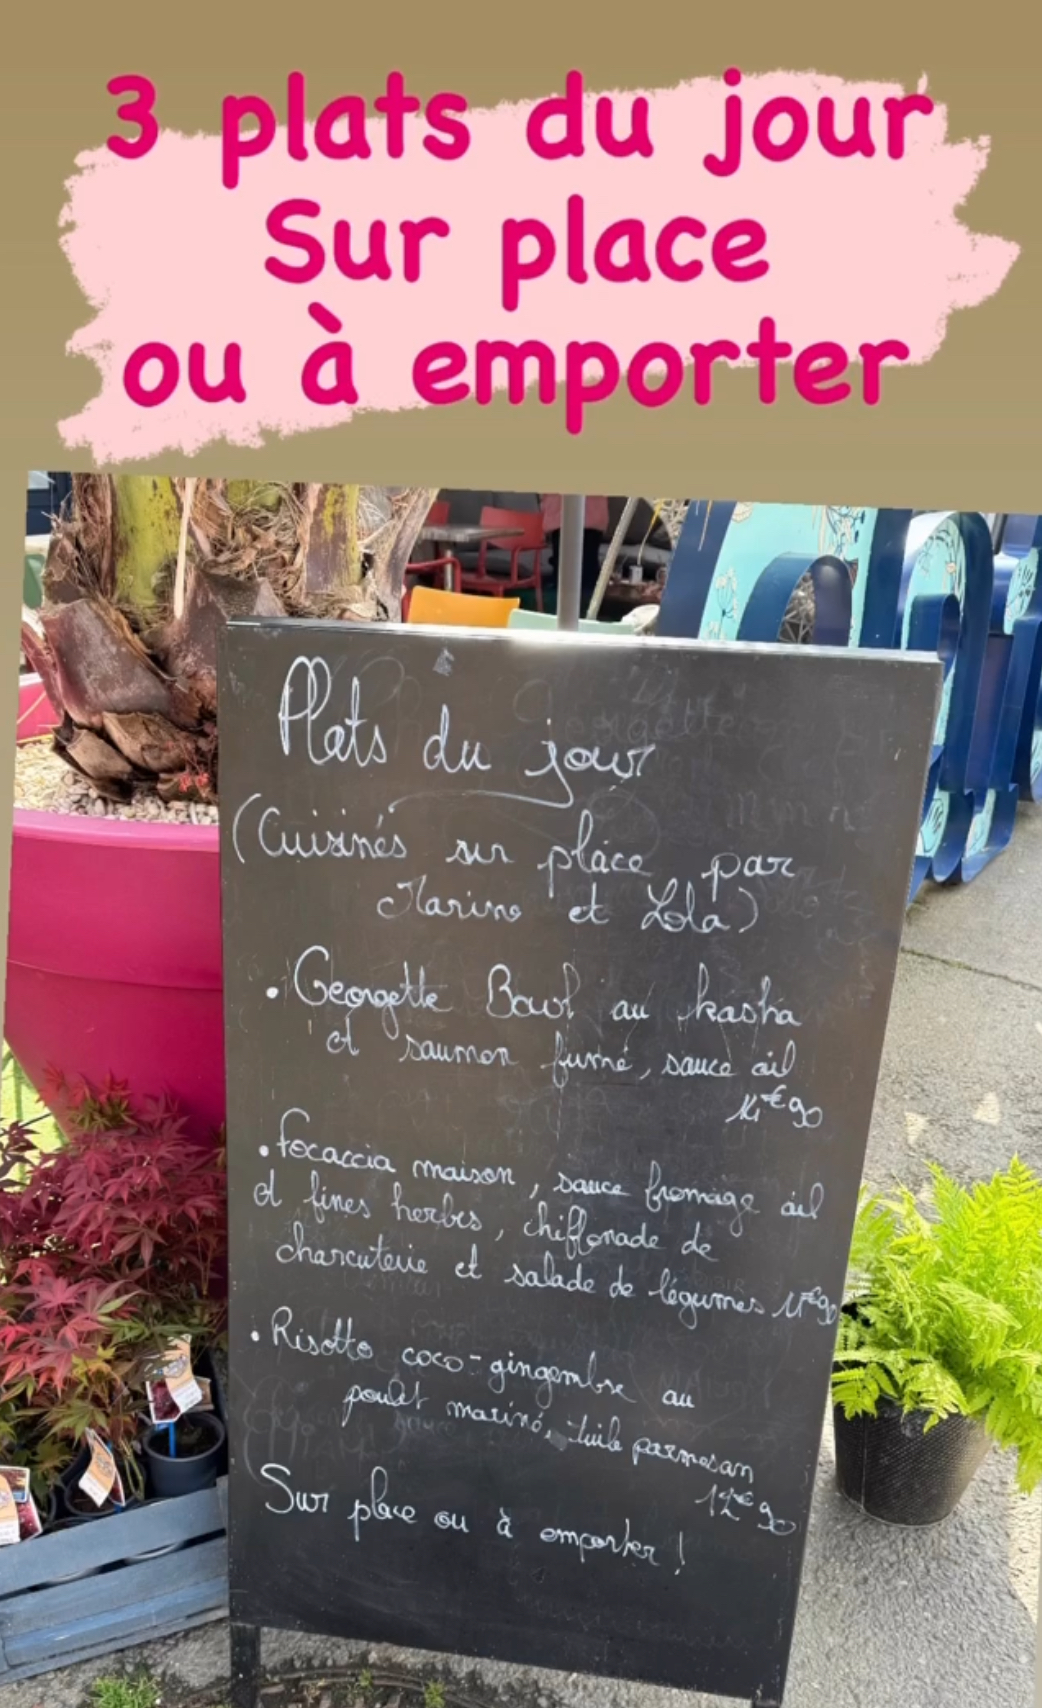 3 plats du jour
Sur place
ou à emporter
Plats du jour
(Cuisinés sur place par
Marine et Lola)
• Georgette Bowl au kasha
et saumon fumé, sauce ail
€90
• Focaccia maison, sauce fromage ail
et fines herbes, chiffonade de
charcuterie et salade de légumes
• Risotto coco-gingembre au
poulet mariné, tuile parmesan
12€90
Sur place ou à emporter !